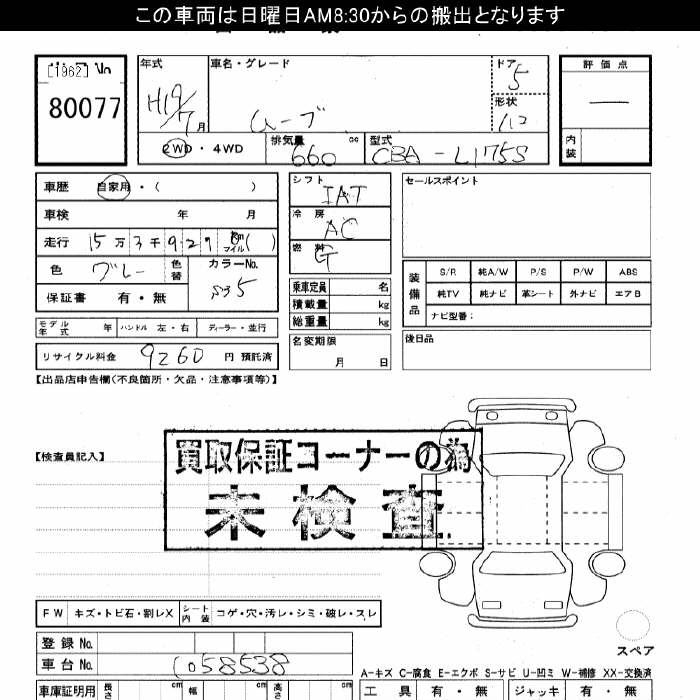 この車両は日曜日AM8:30からの搬出となります
[1962]
80077
年式 H19/7月
車名・グレード ムーブ
ドア 5
形状
評価点 —
内装
2WD・4WD
排気量 660 cc
型式 CBA-L175S
車歴 自家用・( )
車検 年 月
走行 15万3千929 km マイル ( )
色 グレー 色替 カラーNo. S35
保証書 有・無
シフト IAT
冷房 AC
燃料 G
乗車定員 名
積載量 kg
総重量 kg
名変期限 月 日
セールスポイント
装備品 S/R 純A/W P/S P/W ABS
純TV 純ナビ 革シート 外ナビ エアB
ナビ型番:
後日品
モデル年式 年 ハンドル 左・右 ディーラー・並行
リサイクル料金 9260 円 預託済
【出品店申告欄(不良箇所・欠品・注意事項等)】
【検査員記入】
買取保証コーナーの為
未検査
FW キズ・トビ石・割レX シート内装 コゲ・穴・汚レ・シミ・破レ・スレ
登録No.
車台No. 058538
スペア
A-キズ C-腐食 E-エクボ S-サビ U-凹ミ W-補修 XX-交換済
車庫証明用 長さ cm 幅 cm 高さ cm
工具 有・無 ジャッキ 有・無